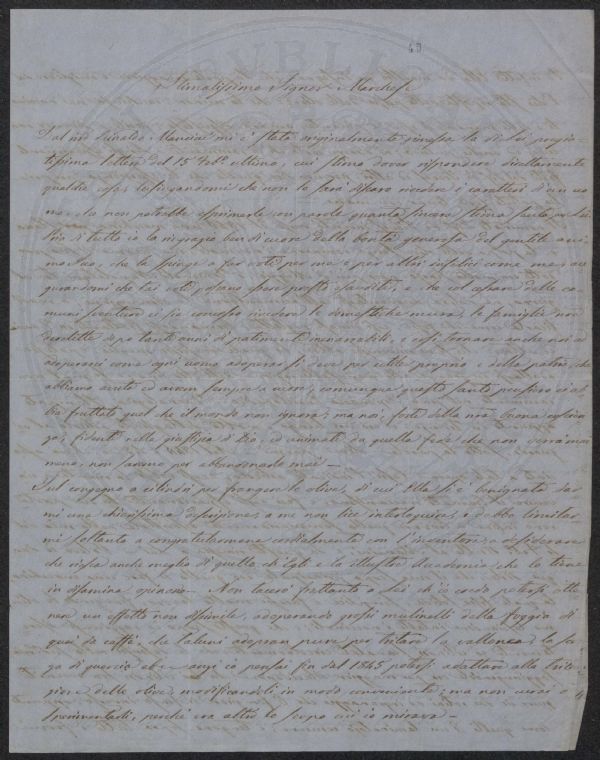 49
Stimatissimo Signor Marchese
Dal mio Rinaldo Mancini mi è stata originalmente rimessa la di lei pregia
tissima lettera del 15 ultimo, cui stimo dover rispondere direttamente
qualche cosa, lusingandomi che non le sarà discaro ricevere i caratteri di un uo
mo, che non potrebbe esprimerle con parole quanta sincera stima senta per Lei.
Pria di tutto io la ringrazio ben di cuore della bontà generosa del gentile ani
mo Suo, che la spinge a far voti per me e per altri infelici come me, au
gurandomi che tai voti possano esser presto esauditi, e che col cessare delle co
muni sventure ci sia concesso rivedere le domestiche mura, le famiglie non
vedute dopo tanti anni di patimenti inenarrabili, e così tornare anche noi ad
adoperarci come ogni uomo adoperar si deve per utile proprio e della patria, che
abbiamo avuto ed avrem sempre a cuore, comunque questo santo pensiero ci ab
bia fruttato quel che il mondo non ignora; ma noi, forti della nra buona coscien
za, fidenti nella giustizia di Dio, ed animati da quella fede che non verrà mai
meno, non saremo per abbandonarlo mai —
Sul congegno a cilindri per frangere le olive, di cui Ella si è benignata dar
mi una chiarissima descrizione, a me non lice interloquire, e debbo limitar
mi soltanto a congratularmene cordialmente con l'inventore, e desiderare
che riesca anche meglio di quello ch'Egli e la illustre Accademia che lo tiene
in disamina sperano — Non taccio frattanto a Lei ch'io credo potersi otte
nere un effetto non dissimile, adoperando grossi mulinelli della foggia di
quei da caffè, che taluni adopran pure per tritare la vallonea, la scor
za di quercia ed anzi io pensai fin dal 1845 potersi adattare alla trita
zione delle olive, modificandoli in modo conveniente; ma non curai
sperimentarli, perchè era altro lo scopo cui io mirava —